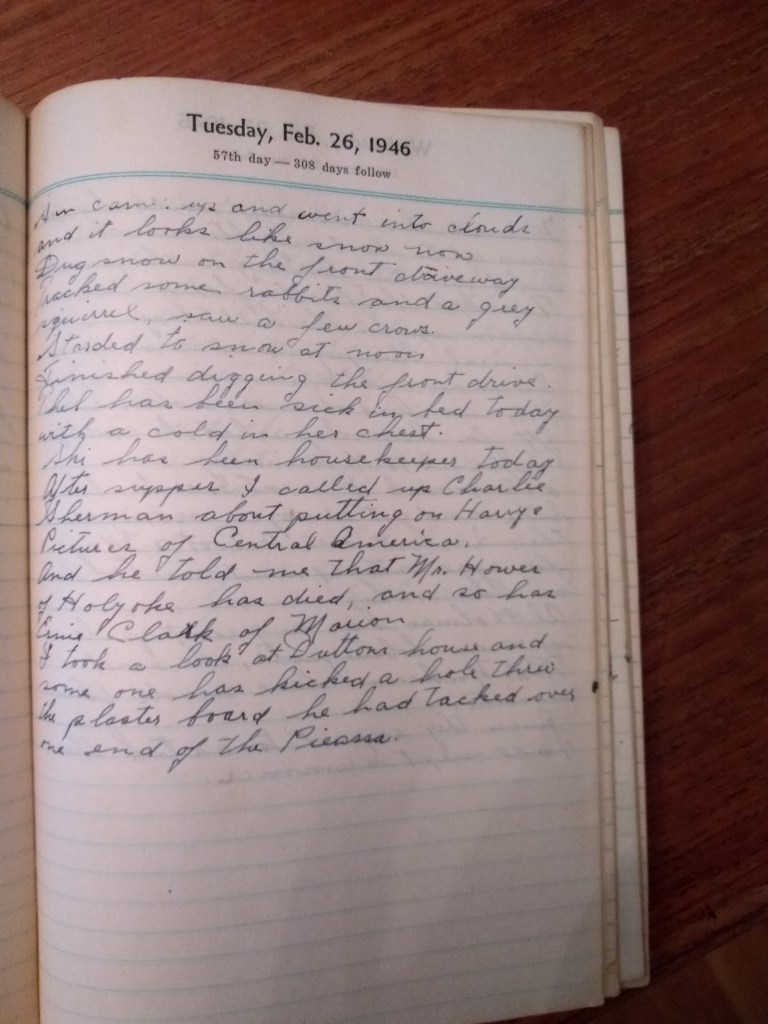 Tuesday, Feb. 26, 1946
57th day — 308 days follow
Sun came up and went into clouds
and it looks like snow now
Dug snow on the front driveway
Tracked some rabbits and a grey
squirrel, saw a few crows.
Starded to snow at noon
Finished digging the front drive.
Thel has been sick in bed today
with a cold in her chest.
has been housekeeper today
After supper I called up Charlie
Sherman about putting on Harrys
Pictures of Central America.
And he told me that Mr. Howes
of Holyoke has died, and so has
Ernie Clark of Marion
I took a look at Duttons house and
some one has kicked a hole threw
the plaster board he had tacked over
one end of the Picassa.